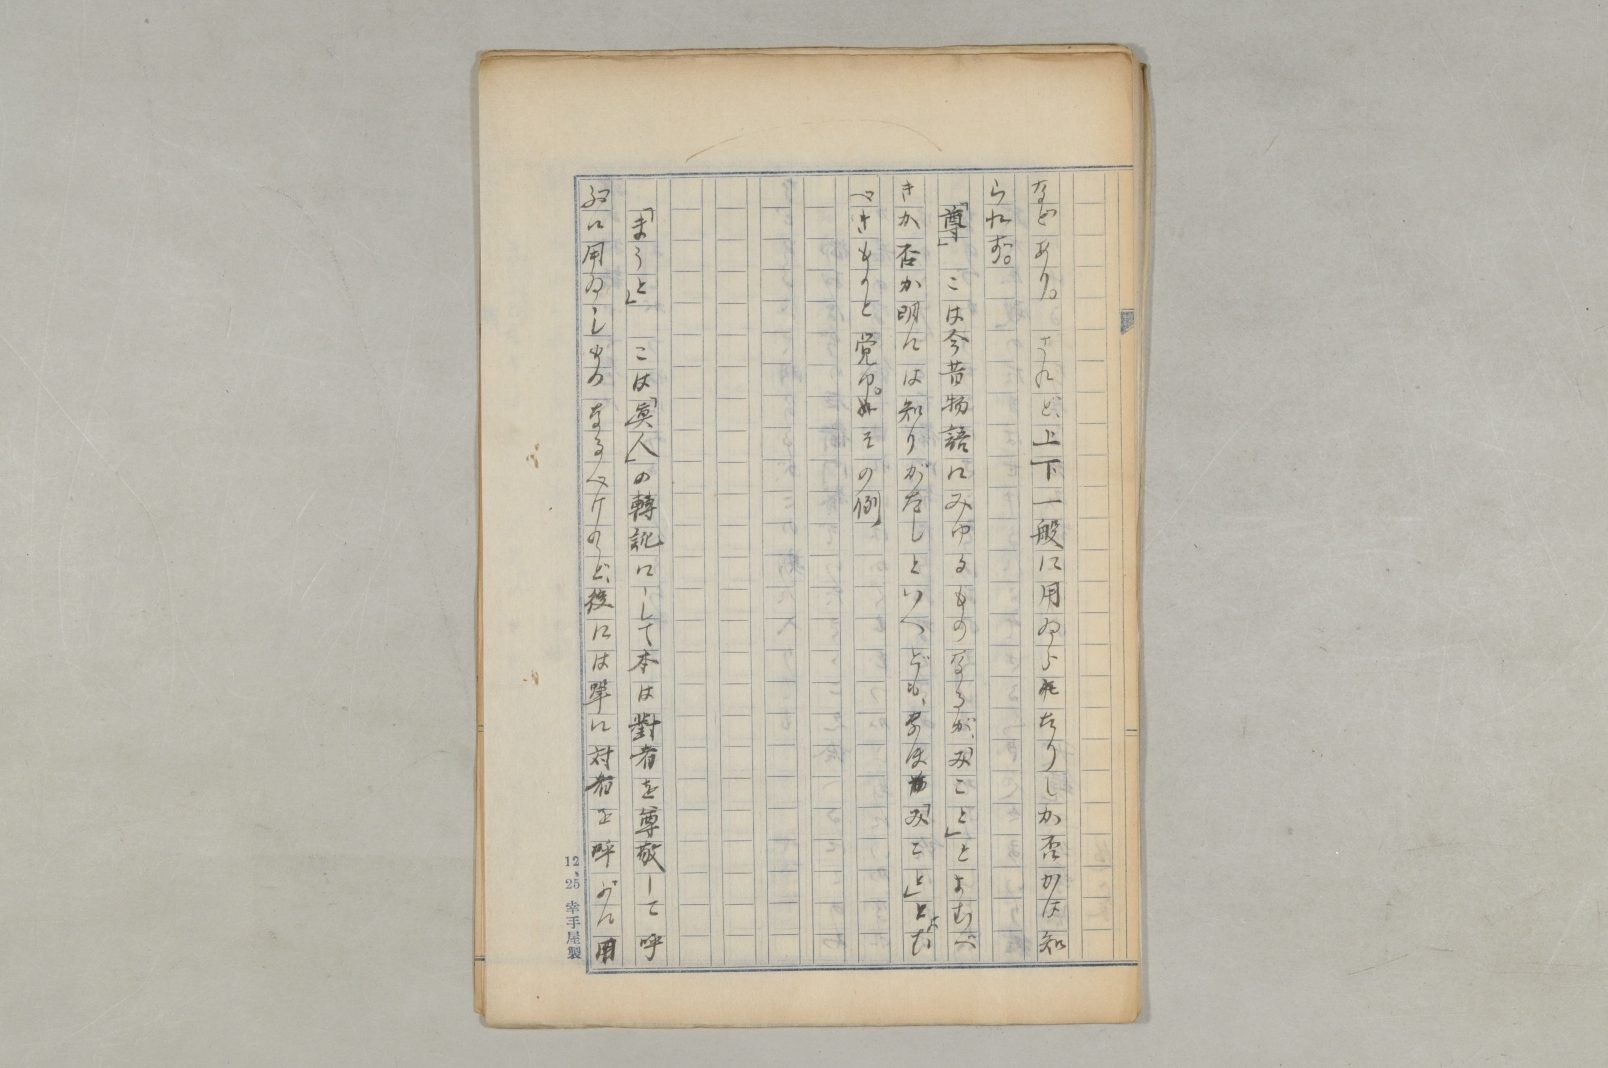 などあり。されど、上下一般に用ゐられたりしか否かは知
られず。
「尊」 こは今昔物語にみゆるものなるが、「みこと」とよむべ
きか否か明には知りがたしといへども、なほ「みこと」とよむ
べきものと覚ゆ。その例
「まうと」 こは「眞人」の轉訛にして本は對者を尊敬して呼
ぶに用ゐしものなるべけれど、後には單に対者を呼ぶに用
12、25 幸手屋製